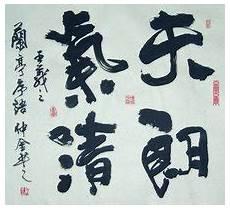 天朗
氣清
王羲之
蘭亭序語仲金書之